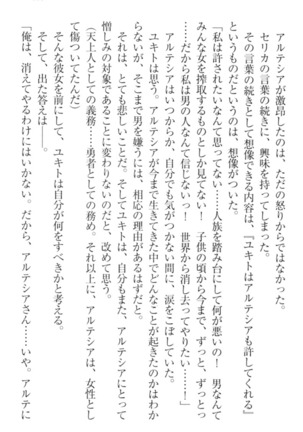 アルテシアが激昂したのは、ただの怒りからではなかった。
セリカの言葉の続きに、興味を持ってしまった。
その言葉の続きとして想像できる内容は、『ユキトはアルテシアも許してくれる』
というものだというのは、想像がついた。
「私は許されたいなんて思ってない！　人族を踏み台にして何が悪いの！　男なんて
みんな女を搾取するものとしか見てない！　子供の頃から今まで、ずっと、ずっとっ
……だから私は男の人なんて信じないっ！　世界から消し去ってやりたい……！」
アルテシアはいつからか、自分でも気がつかない間に、涙をこぼしていた。
ユキトは思う。アルテシアが今まで生きてきた中でどんなことが起きたのかはわか
らないが、そこまで男を嫌うには、相応の理由があるはずだと。
それは、とても悲しいことだ。そしてユキトは、自分もまた、アルテシアにとって
憎しみの対象であることに変わりないのだと、改めて思う。
（天上人としての義務……勇者としての務め。それ以上に、アルテシアは、女性とし
て傷ついてたんだ）
そんな彼女を前にして、ユキトは自分が何をすべきかと考える。
そして、出た答えは――。
「俺は、消えてやるわけにはいかない。だから、アルテシアさん……いや。アルテに